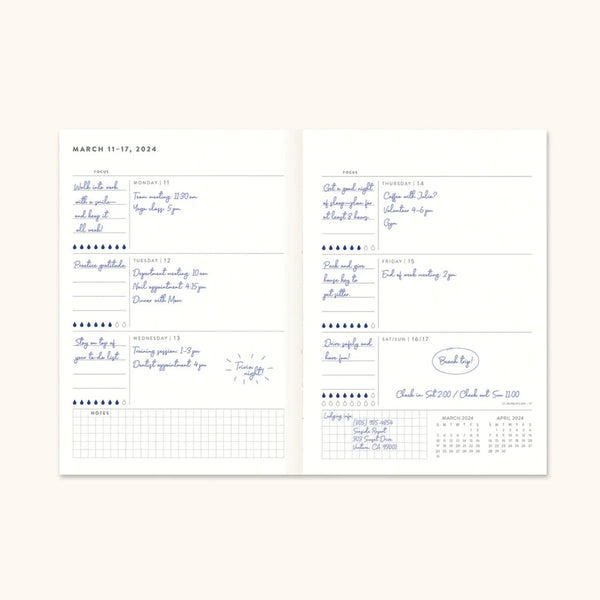 MARCH 11–17, 2024
FOCUS
Walk into work
with a smile—
and keep it
all week!
MONDAY | 11
Team meeting: 11:30 am
Yoga class: 5 pm
Practice gratitude.
TUESDAY | 12
Department meeting: 10 am
Nail appointment: 4:15 pm
Dinner with Mom
Stay on top of
your to-do list.
WEDNESDAY | 13
Training session: 1-3 pm
Dentist appointment: 4 pm
Trivia
night!
NOTES
FOCUS
Get a good night
of sleep—plan for
at least 8 hours.
THURSDAY | 14
Coffee with Julie?
Volunteer 4-6 pm
Gym
Pack and give
house key to
pet sitter.
FRIDAY | 15
End of week meeting: 2 pm
Drive safely and
have fun!
SAT/SUN | 16/17
Beach trip!
Check in: Sat 2:00 / Check out: Sun 11:00
Lodging info:
Seaside Resort
Sunset Drive
Ventura, CA 93001
MARCH 2024
S M T W T F S
1 2
3 4 5 6 7 8 9
10 11 12 13 14 15 16
17 18 19 20 21 22 23
24 25 26 27 28 29 30
31
APRIL 2024
S M T W T F S
1 2 3 4 5 6
7 8 9 10 11 12 13
14 15 16 17 18 19 20
21 22 23 24 25 26 27
28 29 30